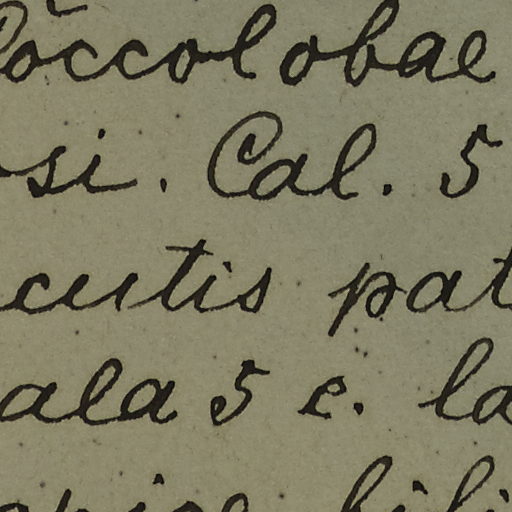 Coccolobae
si. Cal. 5
cutis pat
ala 5 e. la